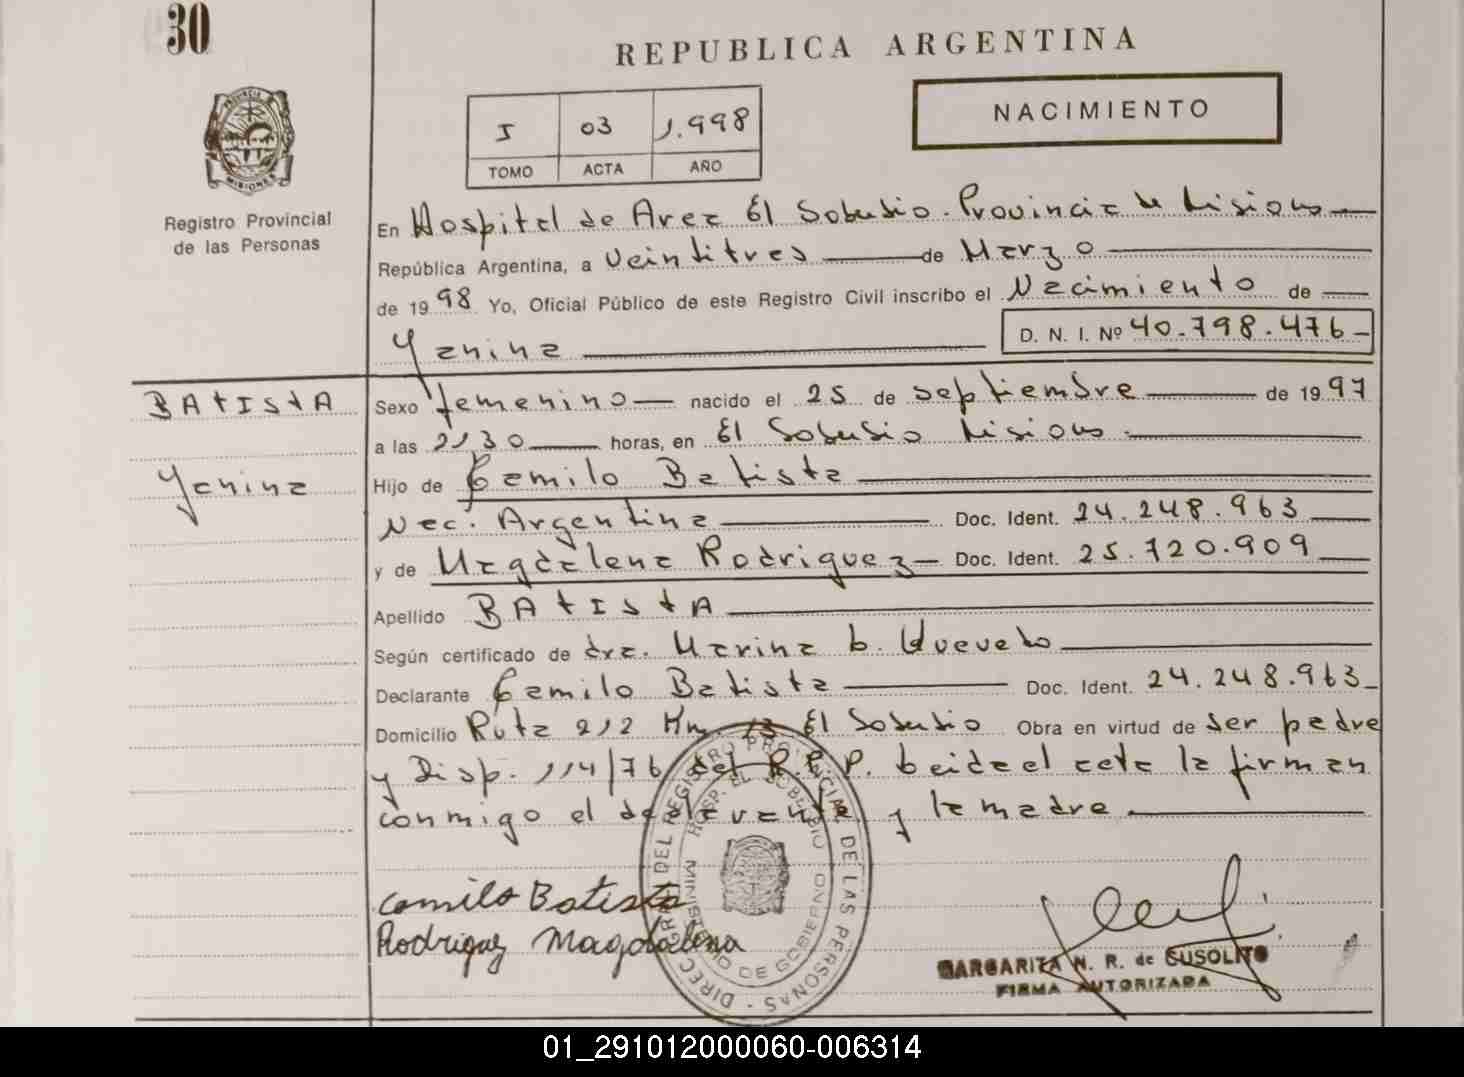 30
REPUBLICA ARGENTINA
PROVINCIA
MISIONES
Registro Provincial
de las Personas
I 03 1.998
TOMO ACTA AÑO
NACIMIENTO
En Hospital de Area El Soberbio. Provincia de Misiones
República Argentina, a veintitres de Marzo
de 1998 Yo, Oficial Público de este Registro Civil inscribo el Nacimiento de
Yanina D. N. I. Nº 40.798.476
BAtIstA
Yanina
Sexo femenino nacido el 25 de septiembre de 1997
a las 2130 horas, en El Soberbio Misiones.
Hijo de Camilo Batista
Nac. Argentina Doc. Ident. 24.248.963
y de Magdalena Rodriguez Doc. Ident. 25.720.909
Apellido BAtIstA
Según certificado de dra. Marina b.
Declarante Camilo Batista Doc. Ident. 24.248.963
Domicilio Ruta 212 Km. 13 El Soberbio Obra en virtud de ser padre
y Disp. 114/76 del R.P.P. Leida el acta la firman
conmigo el declarante y la madre
DIREC. GRAL DEL REGISTRO PROVINCIAL DE LAS PERSONAS
HOSP. EL SOBERBIO
MINISTERIO DE GOBIERNO
Camilo Batista
Rodriguez Magdalena
MARGARITA N. R. de SUSOLITO
FIRMA AUTORIZADA
01_291012000060-006314